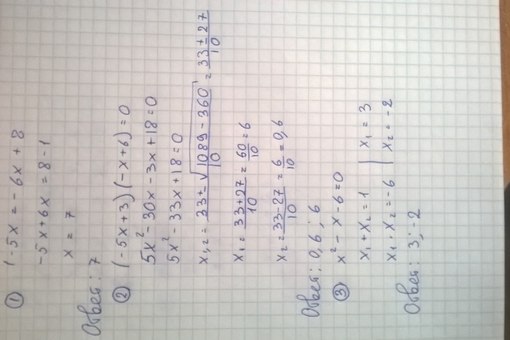 ① 1-5x = -6x + 8
-5x+6x = 8-1
x = 7
Ответ: 7
② (-5x+3)(-x+6)=0
5x² - 30x - 3x + 18 = 0
5x² - 33x + 18 = 0
x₁,₂ = (33 ± √(1089 - 360))/10 = (33 ± 27)/10
x₁ = (33+27)/10 = 60/10 = 6
x₂ = (33-27)/10 = 6/10 = 0,6
Ответ: 0,6 ; 6
③ x² - x - 6 = 0
x₁ + x₂ = 1 | x₁ = 3
x₁ · x₂ = -6 | x₂ = -2
Ответ: 3; -2